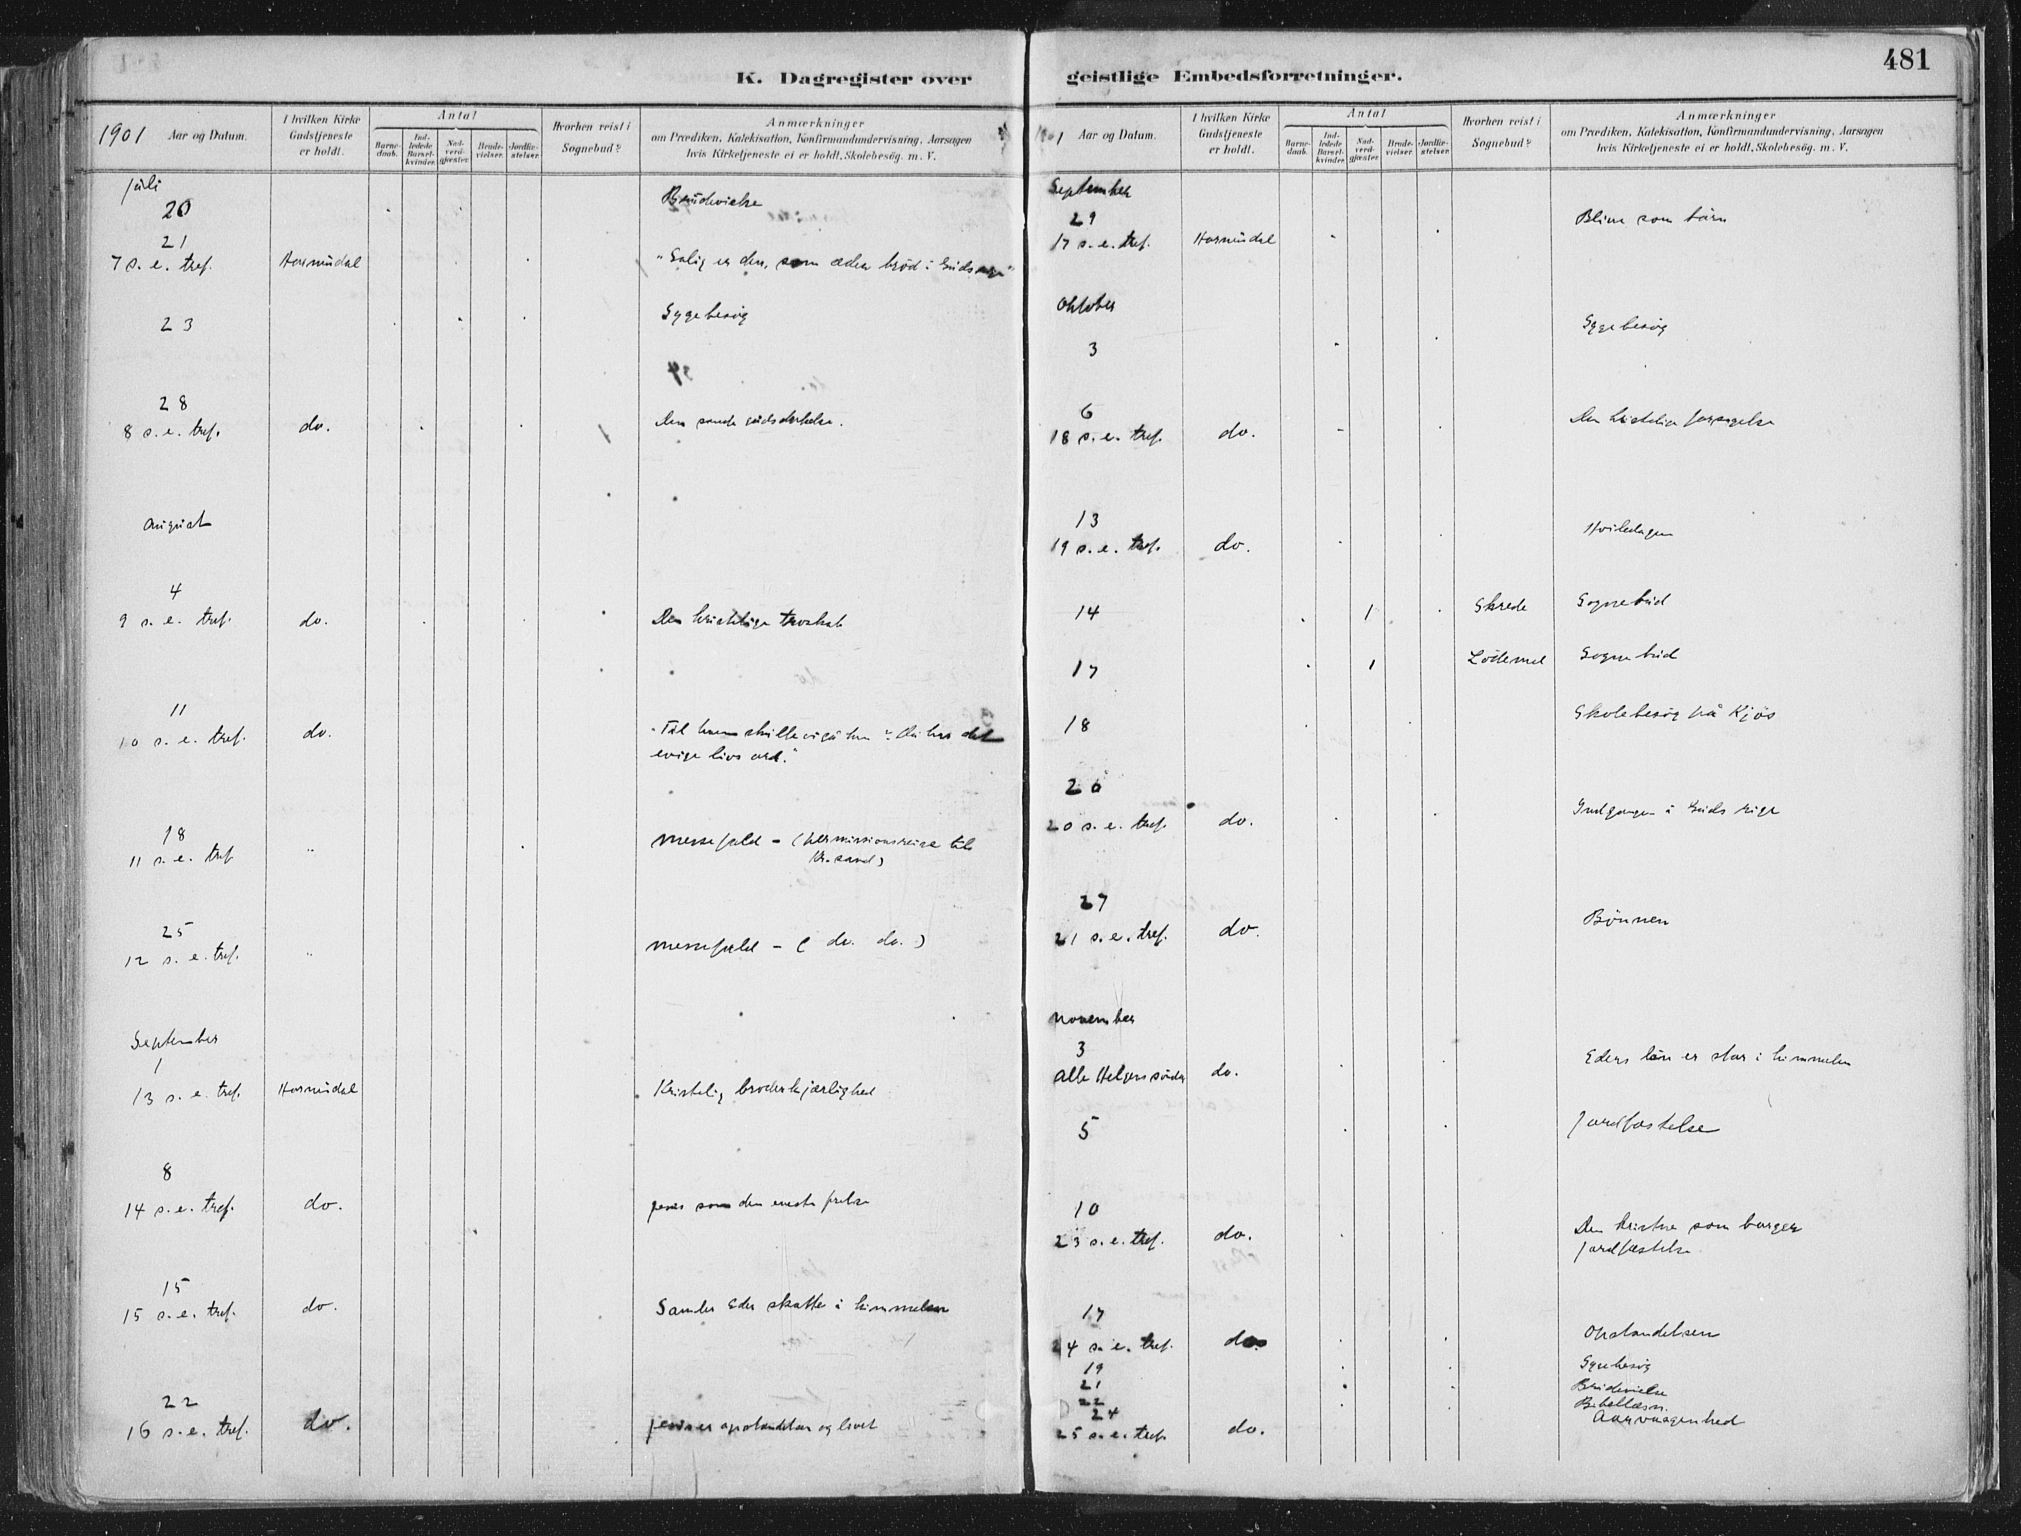 K. Dagregister over
1901 Aar og Datum.
I hvilken Kirke Gudstjeneste er holdt.
Antal
Barnedaab.
Indledede Barselkvinder.
Nadverdgjæster.
Brudevielser.
Jordfæstelser.
Hvorhen reist i Sognebud?
Anmærkninger
om Prædiken, Katekisation, Konfirmandundervisning, Aarsagen
hvis Kirketjeneste ei er holdt, Skolebesøg. m. V.
juli
20 Brudevielse
21
7 s. e. tref. Hornindal "Salig er den, som æder brød i Guds
23 Sygebesøg
28
8 s. e. tref. do. Den sande gudsdyrkelse.
August
4
9 s. e. tref. do. Den kristelige troskab
11
10 s. e. tref. do. "Til hvem skulle vi gå hen? du har det
evige livs ord."
18
11 s. e. tref " Messefald - (hermissionsreise til
Kr.sand)
25
12 s. e. tref. " Messefald - ( do. do. )
September
1
13 s. e. tref. Hornindal Kristelig broderkjærlighed
8
14 s. e. tref. do. Jesus som den eneste frelse
15
15 s. e. tref. do. Samler Eder skatte i himmelen
22
16 s. e. tref. do. Jesus er opstandelsen og livet
geistlige Embedsforretninger.
481
1901 Aar og Datum.
I hvilken Kirke Gudstjeneste er holdt.
Antal
Barnedaab.
Indledede Barselkvinder.
Nadverdgjæster.
Brudevielser.
Jordfæstelser.
Hvorhen reist i Sognebud?
Anmærkninger
om Prædiken, Katekisation, Konfirmandundervisning, Aarsagen
hvis Kirketjeneste ei er holdt, Skolebesøg. m. V.
September
29 Blive som børn
17 s. e. tref. Hornindal
Oktober
3 Sygebesøg
6
18 s. e. tref. do. Den kristelige forsagelse
13
19 s. e. tref. do. Hviledagen
14 1 Skrede Sognebud
17 1 Lødemel Sognebud
18 Skolebesøg på Kjøs
20
20 s. e. tref. do. Indgangen i Guds rige
27
21 s. e. tref. do. Bønnen
November
3
Alle Helgens søndag do. Eders løn er stor i himmelen
5 Jordfæstelse
10
23 s. e. tref. do. Den kristne som borger
Jordfæstelse
17
24 s. e. tref. do. Opstandelsen
19 Sygebesøg
21 Brudevielse
22 Bibellæsn.
24
25 s. e. tref. do. Aarvaagenhed